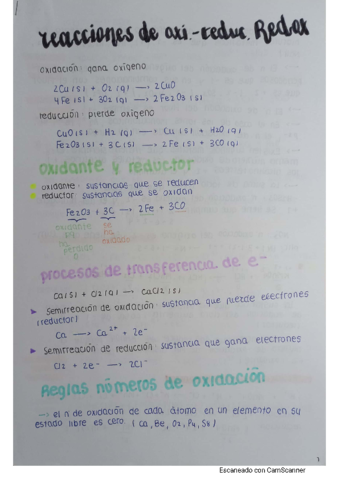 reacciones de oxi.-reduc. Redox
oxidación: gana oxígeno
2Cu(s) + O2(g) → 2CuO
4Fe(s) + 3O2(g) → 2Fe2O3(s)
reducción: pierde oxígeno
CuO(s) + H2(g) → Cu(s) + H2O(g)
Fe2O3(s) + 3C(s) → 2Fe(s) + 3CO(g)
oxidante y reductor
oxidante: sustancias que se reducen
reductor: sustancias que se oxidan
Fe2O3 + 3C → 2Fe + 3CO
oxidante se
ha
se oxidado
perdido
O
procesos de transferencia de e-
Ca(s) + Cl2(g) → CaCl2(s)
➤ Semirreación de oxidación: sustancia que pierde electrones
(reductor)
Ca → Ca2+ + 2e-
➤ Semirreación de reducción: sustancia que gana electrones
Cl2 + 2e- → 2Cl-
Reglas números de oxidación
→ el n de oxidación de cada átomo en un elemento en su
estado libre es cero. (Ca, Be, O2, P4, S8)
1
Escaneado con CamScanner